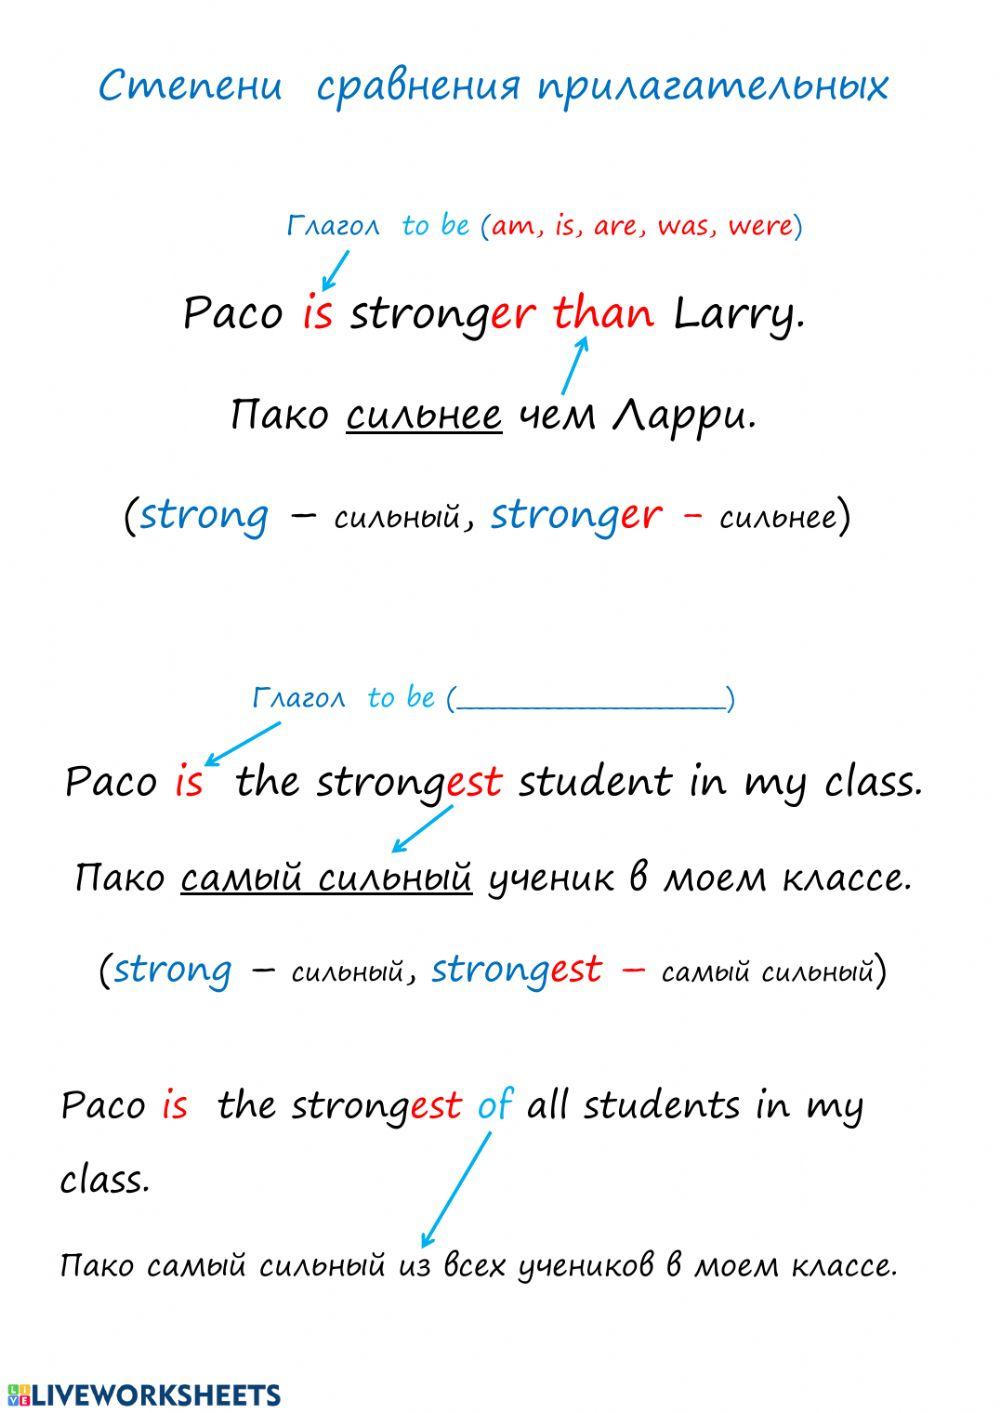 Степени сравнения прилагательных
Глагол to be (am, is, are, was, were)
Paco is stronger than Larry.
Пако сильнее чем Ларри.
(strong – сильный, stronger - сильнее)
Глагол to be (____________________)
Paco is the strongest student in my class.
Пако самый сильный ученик в моем классе.
(strong – сильный, strongest – самый сильный)
Paco is the strongest of all students in my
class.
Пако самый сильный из всех учеников в моем классе.
LIVE LIVEWORKSHEETS